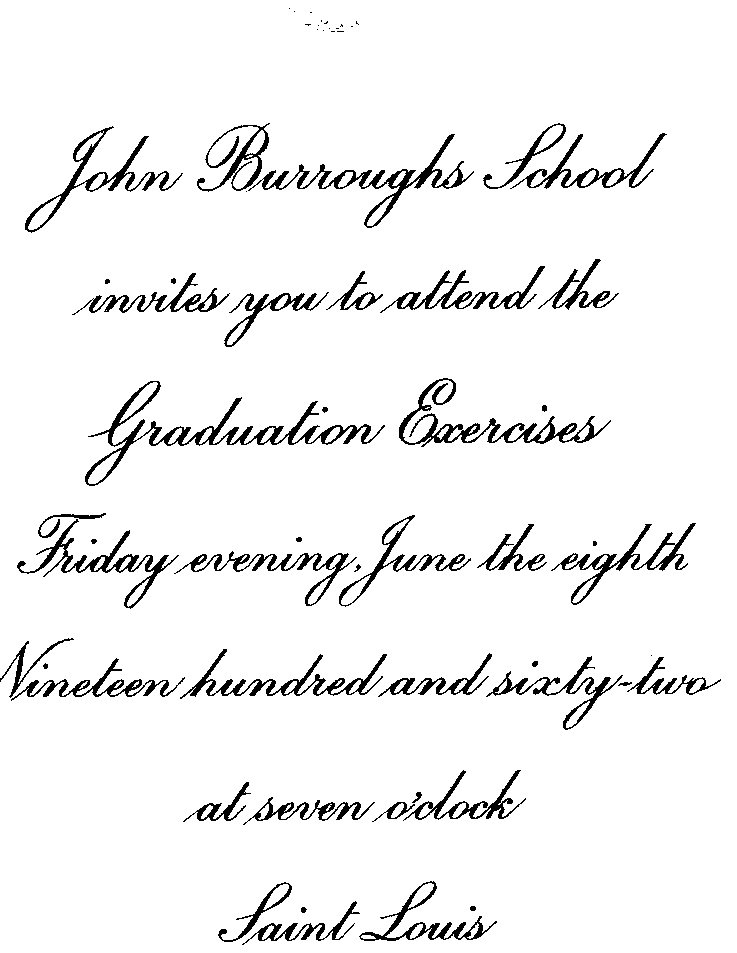 John Burroughs School
invites you to attend the
Graduation Exercises
Friday evening, June the eighth
Nineteen hundred and sixty-two
at seven o'clock
Saint Louis